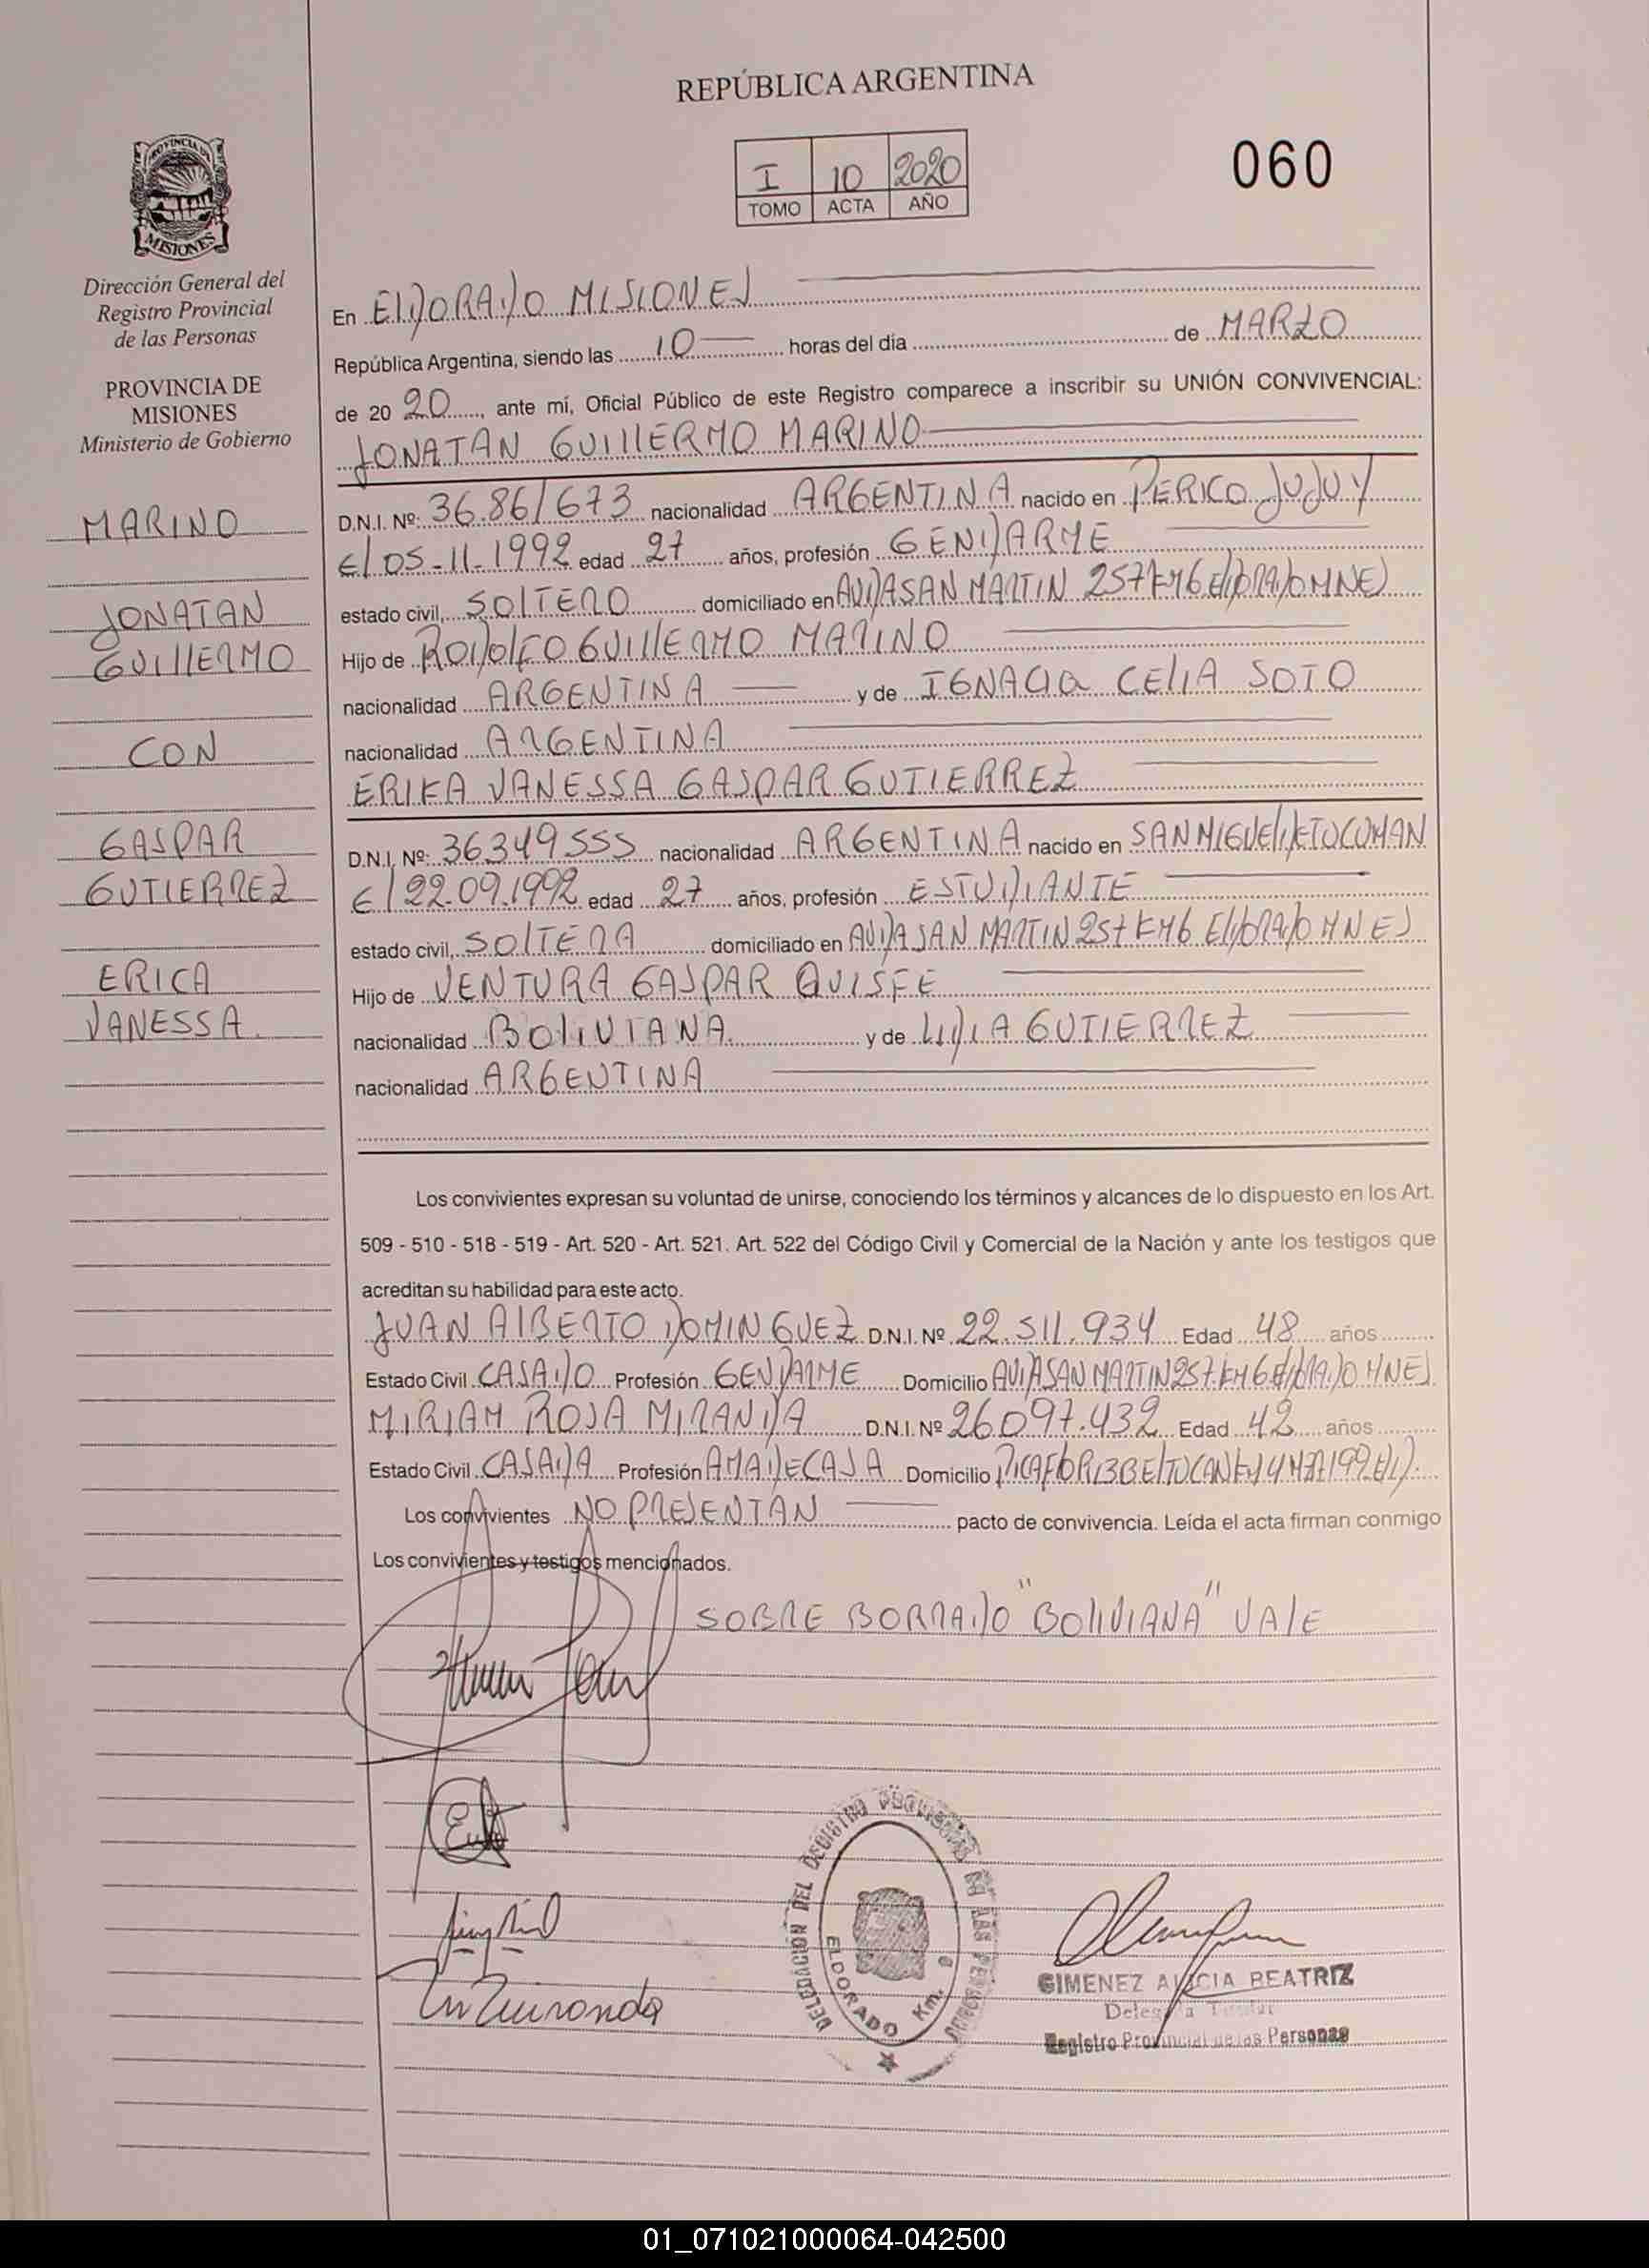 REPÚBLICA ARGENTINA
I 10 2020
TOMO ACTA AÑO
060
PROVINCIA DE
MISIONES
Dirección General del
Registro Provincial
de las Personas
PROVINCIA DE
MISIONES
Ministerio de Gobierno
MARINO
JONATAN
GUILLERMO
CON
GASPAR
GUTIERREZ
ERICA
VANESSA.
En ELDORADO MISIONES
República Argentina, siendo las 10 horas del día de MARZO
de 20 20, ante mí, Oficial Público de este Registro comparece a inscribir su UNIÓN CONVIVENCIAL:
JONATAN GUILLERMO MARINO
D.N.I. Nº: 36.861673 nacionalidad ARGENTINA nacido en PERICO JUJUY
El 05-11-1992 edad 27 años, profesión GENDARME
estado civil, SOLTERO domiciliado en AVDA SAN MARTIN 257 KM6 ELDORADO MNES
Hijo de RODOLFO GUILLERMO MARINO
nacionalidad ARGENTINA y de IGNACIA CELIA SOTO
nacionalidad ARGENTINA
ERIKA VANESSA GASPAR GUTIERREZ
D.N.I. Nº: 36349555 nacionalidad ARGENTINA nacido en SAN MIGUEL DE TUCUMAN
El 22.09.1992 edad 27 años, profesión ESTUDIANTE
estado civil, SOLTERA domiciliado en AVDA SAN MARTIN 257 KM6 ELDORADO MNES
Hijo de VENTURA GASPAR QUISPE
nacionalidad BOLIVIANA. y de LIDIA GUTIERREZ
nacionalidad ARGENTINA
Los convivientes expresan su voluntad de unirse, conociendo los términos y alcances de lo dispuesto en los Art.
509 - 510 - 518 - 519 - Art. 520 - Art. 521. Art. 522 del Código Civil y Comercial de la Nación y ante los testigos que
acreditan su habilidad para este acto.
JUAN ALBERTO DOMINGUEZ D.N.I. Nº 22.511.934 Edad 48 años
Estado Civil CASADO Profesión GENDARME Domicilio AVDA SAN MARTIN 257 KM6 ELDORADO MNES
MIRIAM ROSA MIRANDA D.N.I. Nº 26097.432 Edad 42 años
Estado Civil CASADA Profesión AMA DE CASA Domicilio
Los convivientes NO PRESENTAN pacto de convivencia. Leída el acta firman conmigo
Los convivientes y testigos mencionados.
SOBRE BORRADO "BOLIVIANA" VALE
DELEGACION DEL REGISTRO PROVINCIAL DE LAS PERSONAS
ELDORADO Km.
GIMENEZ ALICIA BEATRIZ
Delegada Titular
Registro Provincial de las Personas
01_071021000064-042500